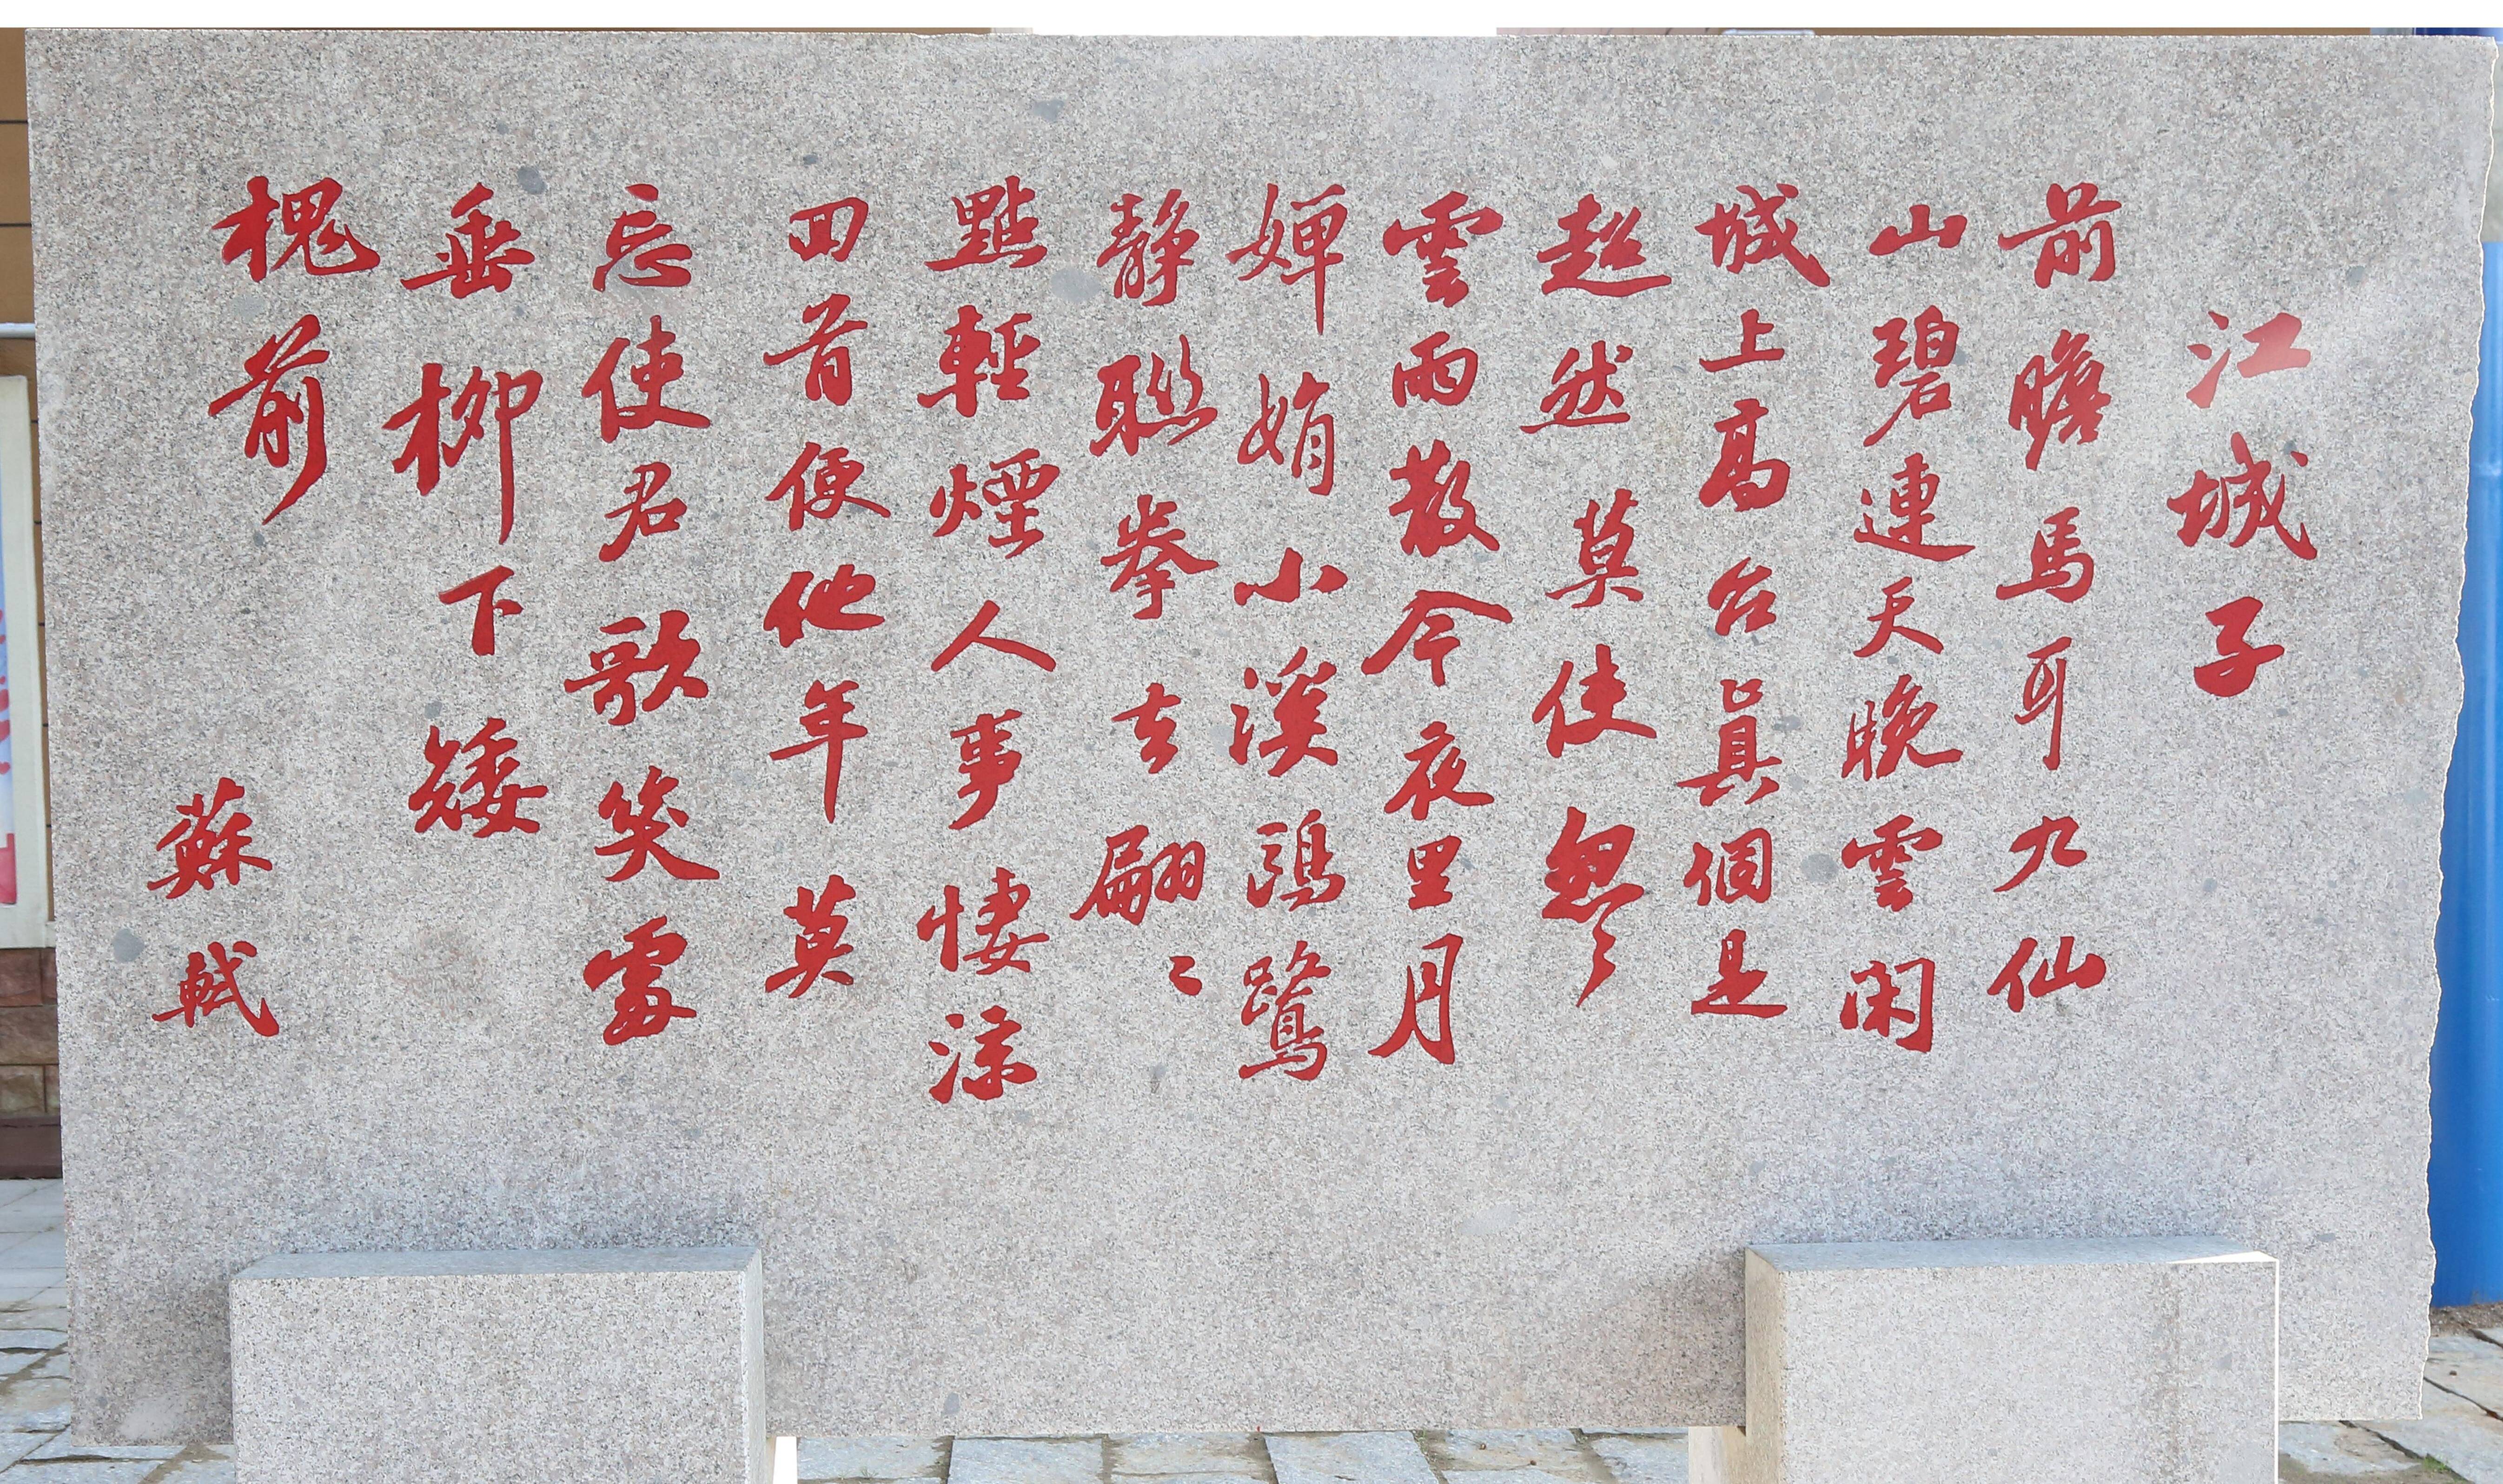 江城子
前瞻馬耳九仙
山碧連天晚雲閑
城上高台真個是
超然莫使匆匆
雲雨散今夜里月
嬋娟小溪鷗鷺
靜聯拳去翩翩
點輕煙人事悽涼
回首便他年莫
忘使君歌笑處
垂柳下矮
槐前
蘇軾